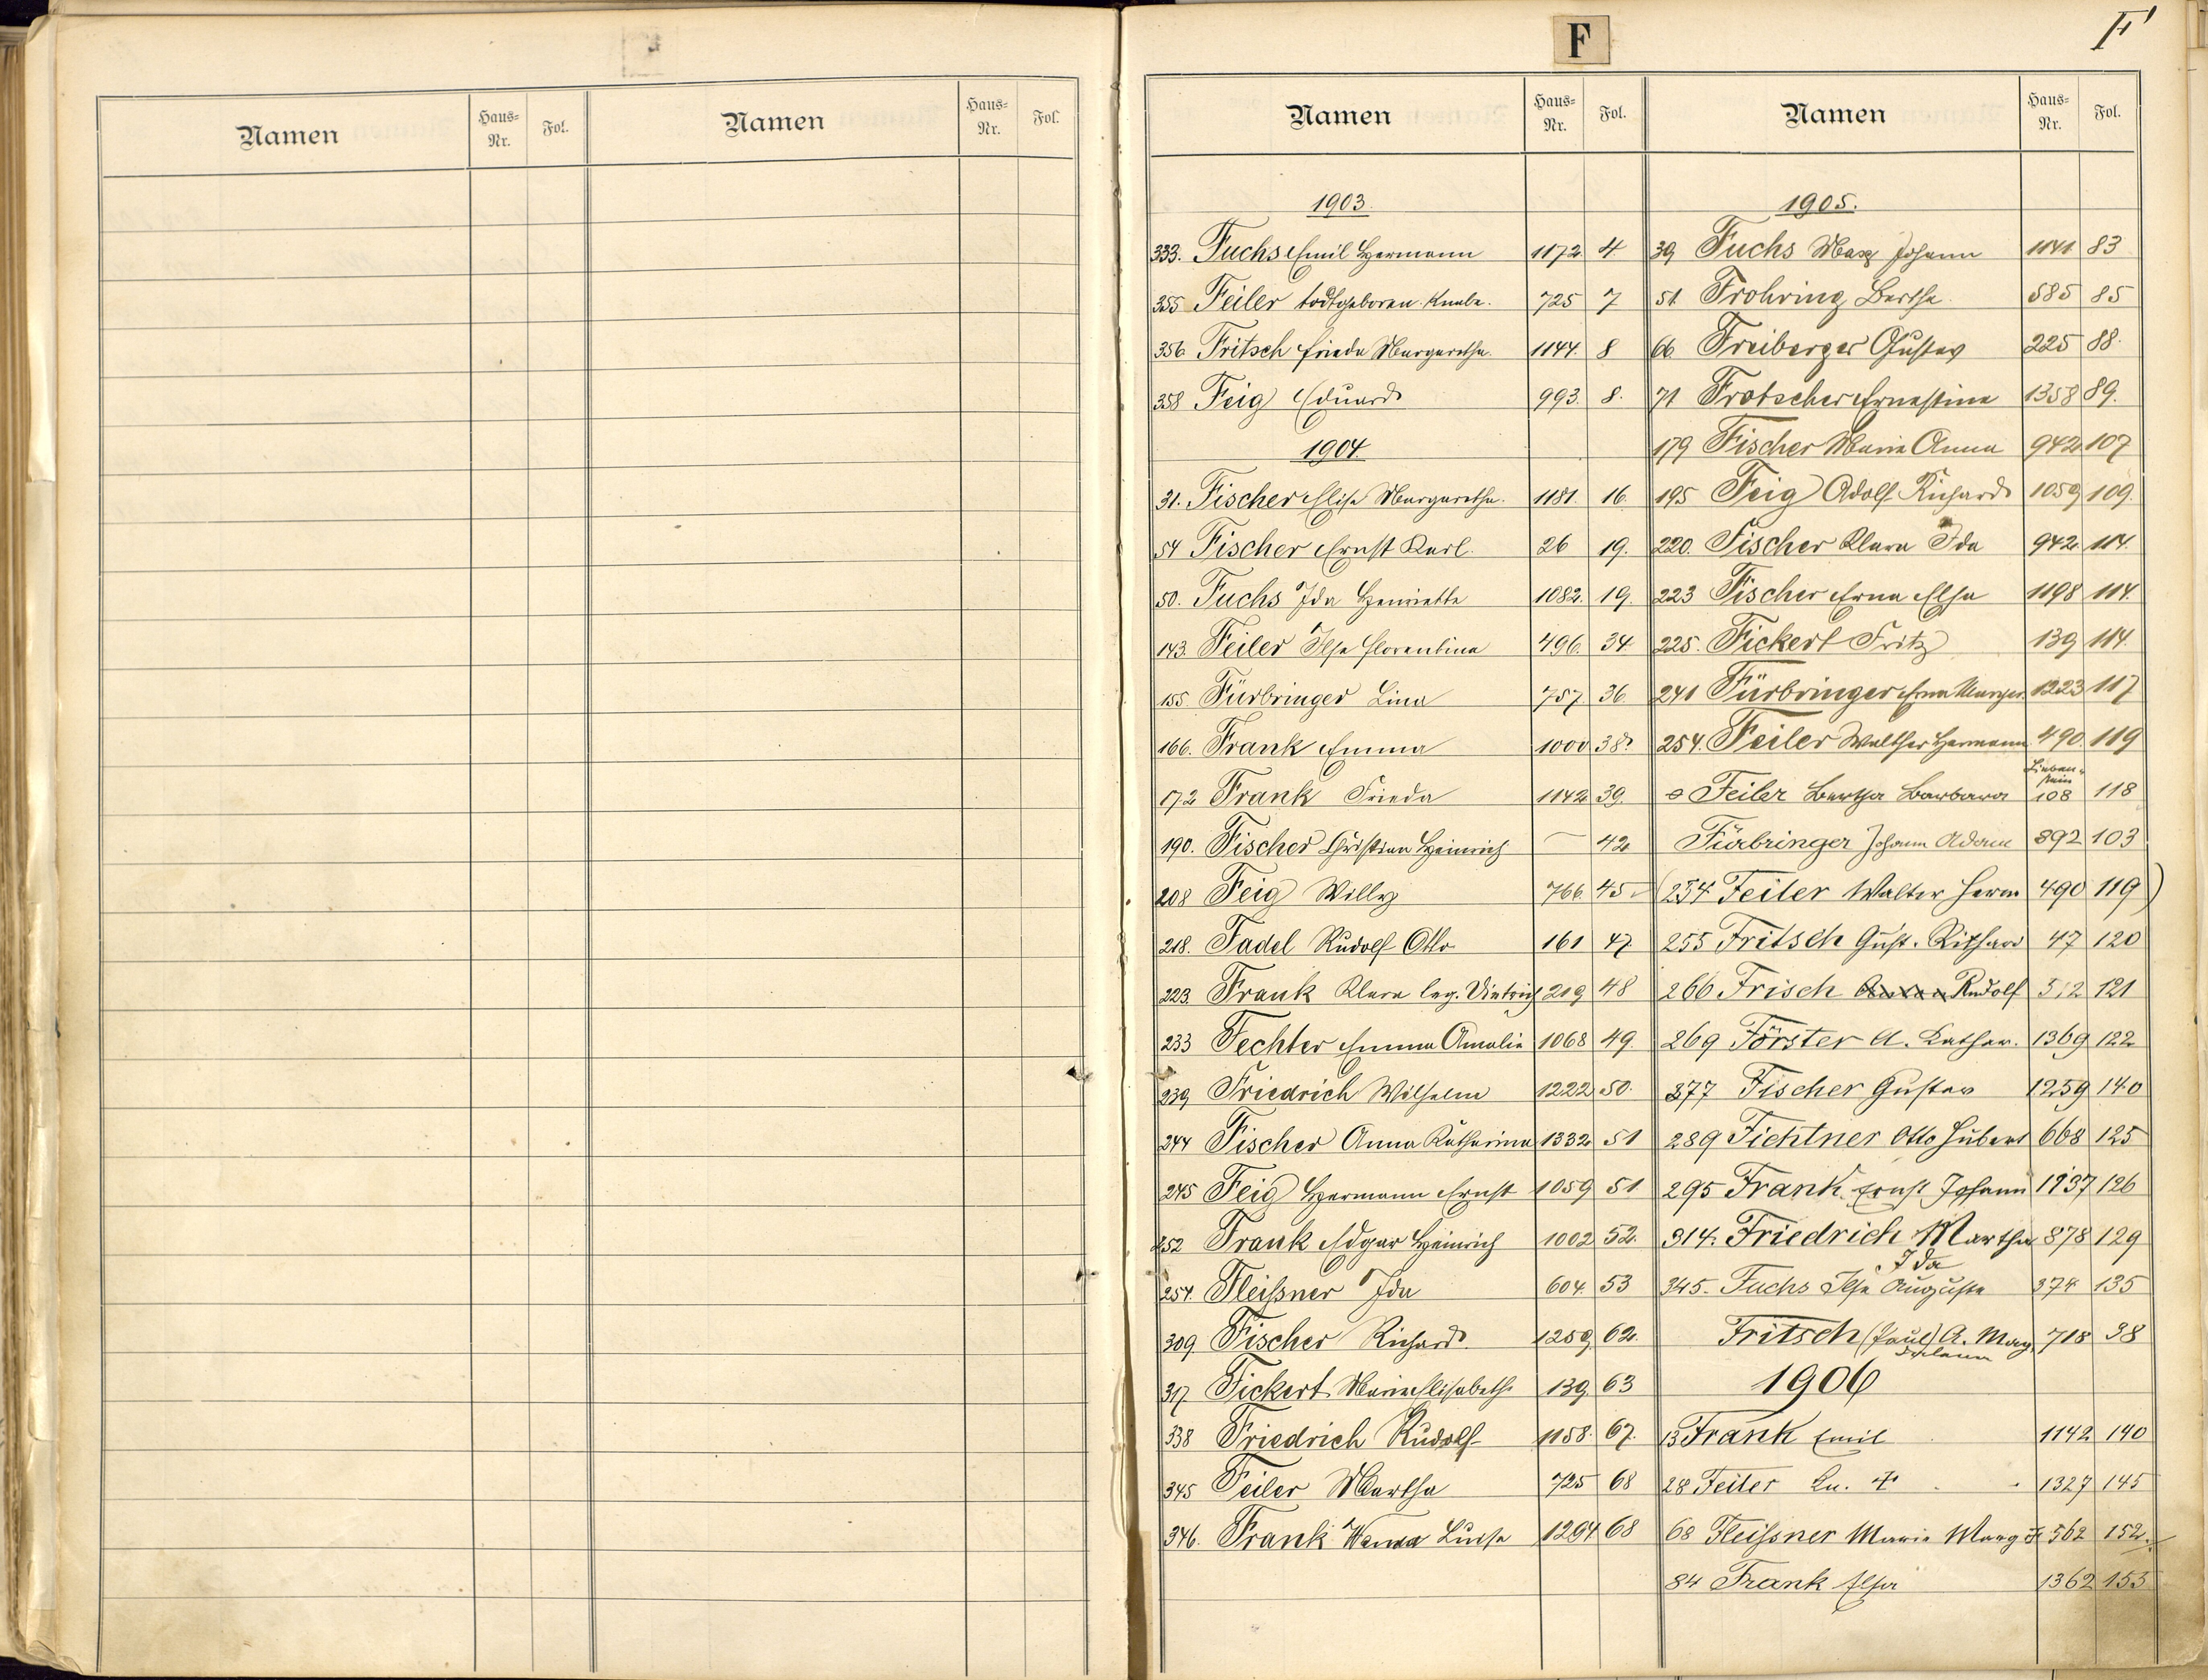 Namen Haus-Nr. Fol. Namen Haus-Nr. Fol.
F
F
Namen Haus-Nr. Fol.
1903.
333. Fuchs Emil Hermann 1172 4
355 Feiler todtgeboren. Knabe. 725 7
356. Fritsch Frieda Margaretha. 1144. 8
358 Feig Eduard 993. 8.
1904
31. Fischer Elise Margaretha. 1181. 16.
54 Fischer Ernst Karl. 26 19.
50. Fuchs Ida Henriette 1082. 19.
143. Feiler Ilse Florentina 496. 34.
155. Fürbringer Lina 757. 36.
166. Frank Emma 1000 38.
172 Frank Frieda 1142 39.
190. Fischer Christian Heinrich — 42
208 Feig Willy 766. 45
218. Fadel Rudolf Otto 161 47.
223. Frank Klara leg. Dietrich 219 48
233 Fechter Emma Amalie 1068 49.
239 Friedrich Wilhelm 1222 50.
244 Fischer Anna Katharina 1332 51
245 Feig Hermann Ernst 1059 51
252 Frank Edgar Heinrich 1002 52.
254. Fleißner Ida 604. 53
309 Fischer Richard. 1259 62.
317. Fickert Marie Elisabeth 139. 63
338 Friedrich Rudolf 1158. 67.
345 Feiler Martha 725 68
346. Frank Wanda Luise 1294 68
Namen Haus-Nr. Fol.
1905.
39 Fuchs Max Johann 1141 83
51. Frohring Bertha. 585 85
66 Freiberger Gustav 225 88.
71 Frotscher Ernestine 1358 89.
179 Fischer Marie Anna 942 107
195 Feig Adolf Richard 1059 109.
220. Fischer Klara Ida 942. 114.
223 Fischer Erna Elsa 1198 114.
225. Fickert Fritz 139 114.
241 Fürbringer Erna Margar. 1223 117
254. Feiler Walther Hermann 490. 119
Feiler Bertha Barbara Lieben-stein 108 118
Fürbringer Johann Adam 892 103
(254 Feiler Walter Herm 490 119)
255 Fritsch Gust. Richard 47 120
266 Frisch Rudolf 512 121
269 Förster A. Kathar. 1369 122
377 Fischer Gustav 1259 140
289 Fichtner Otto Hubert 668 125
295 Frank Ernst Johann 1137 126
314. Friedrich Martha Ida 878 129
345. Fuchs Ilse Auguste 374 135
Fritsch (Paul) A. Mag 718 38
1906
13 Frank Emil 1142 140
28 Feiler Kn. 1327 145
68 Fleißner Marie Marg 562 152.
84 Frank Elsa 1362 153